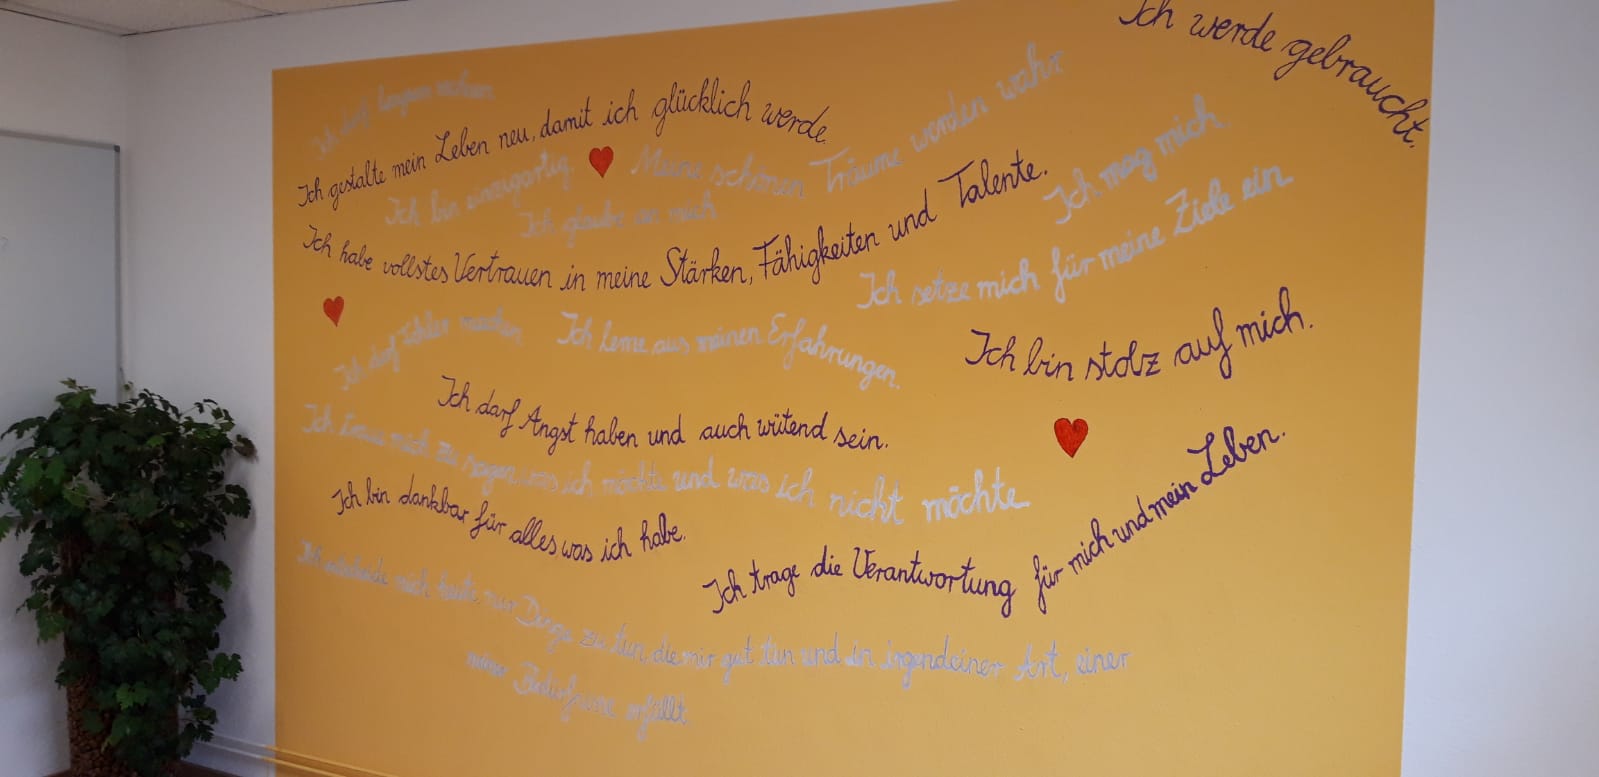 Ich werde gebraucht.
Ich darf langsam
Ich gestalte mein Leben neu, damit ich glücklich werde.
Meine schönen Träume werden wahr
Ich bin einzigartig.
Ich mag mich.
Ich glaube an mich
Ich habe vollstes Vertrauen in meine Stärken, Fähigkeiten und Talente.
Ich setze mich für meine Ziele ein
Ich darf Fehler machen
Ich lerne aus meinen Erfahrungen.
Ich bin stolz auf mich.
Ich darf Angst haben und auch wütend sein.
Ich traue mich zu sagen, was ich möchte und was ich nicht möchte
Ich bin dankbar für alles was ich habe.
Ich trage die Verantwortung für mich und mein Leben.
Ich entscheide mich heute, nur Dinge zu tun, die mir gut tun und in irgendeiner Art, einer
meiner Bedürfnisse erfüllt.